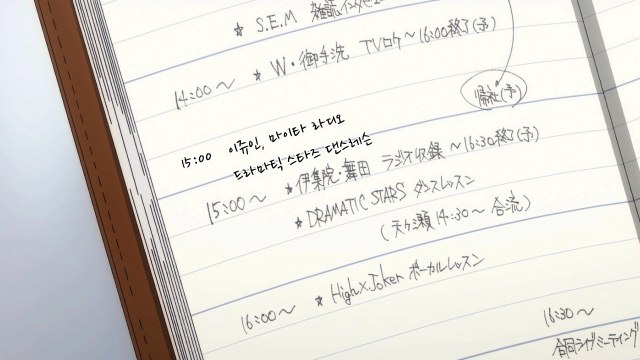 ★ S.E.M 雑誌インタビュー
14:00～ ★ W・御手洗 TVロケ～16:00終了(予)
帰社(予)
15:00 이쥬인, 마이타 라디오
드라마틱 스타즈 댄스레슨
15:00～ ★伊集院・舞田 ラジオ収録 ～16:30終了(予)
★DRAMATIC STARS ダンスレッスン
(天ヶ瀬14:30～ 合流)
16:00～ ★ High×Joker ボーカルレッスン
16:30～
合同ライブミーティング